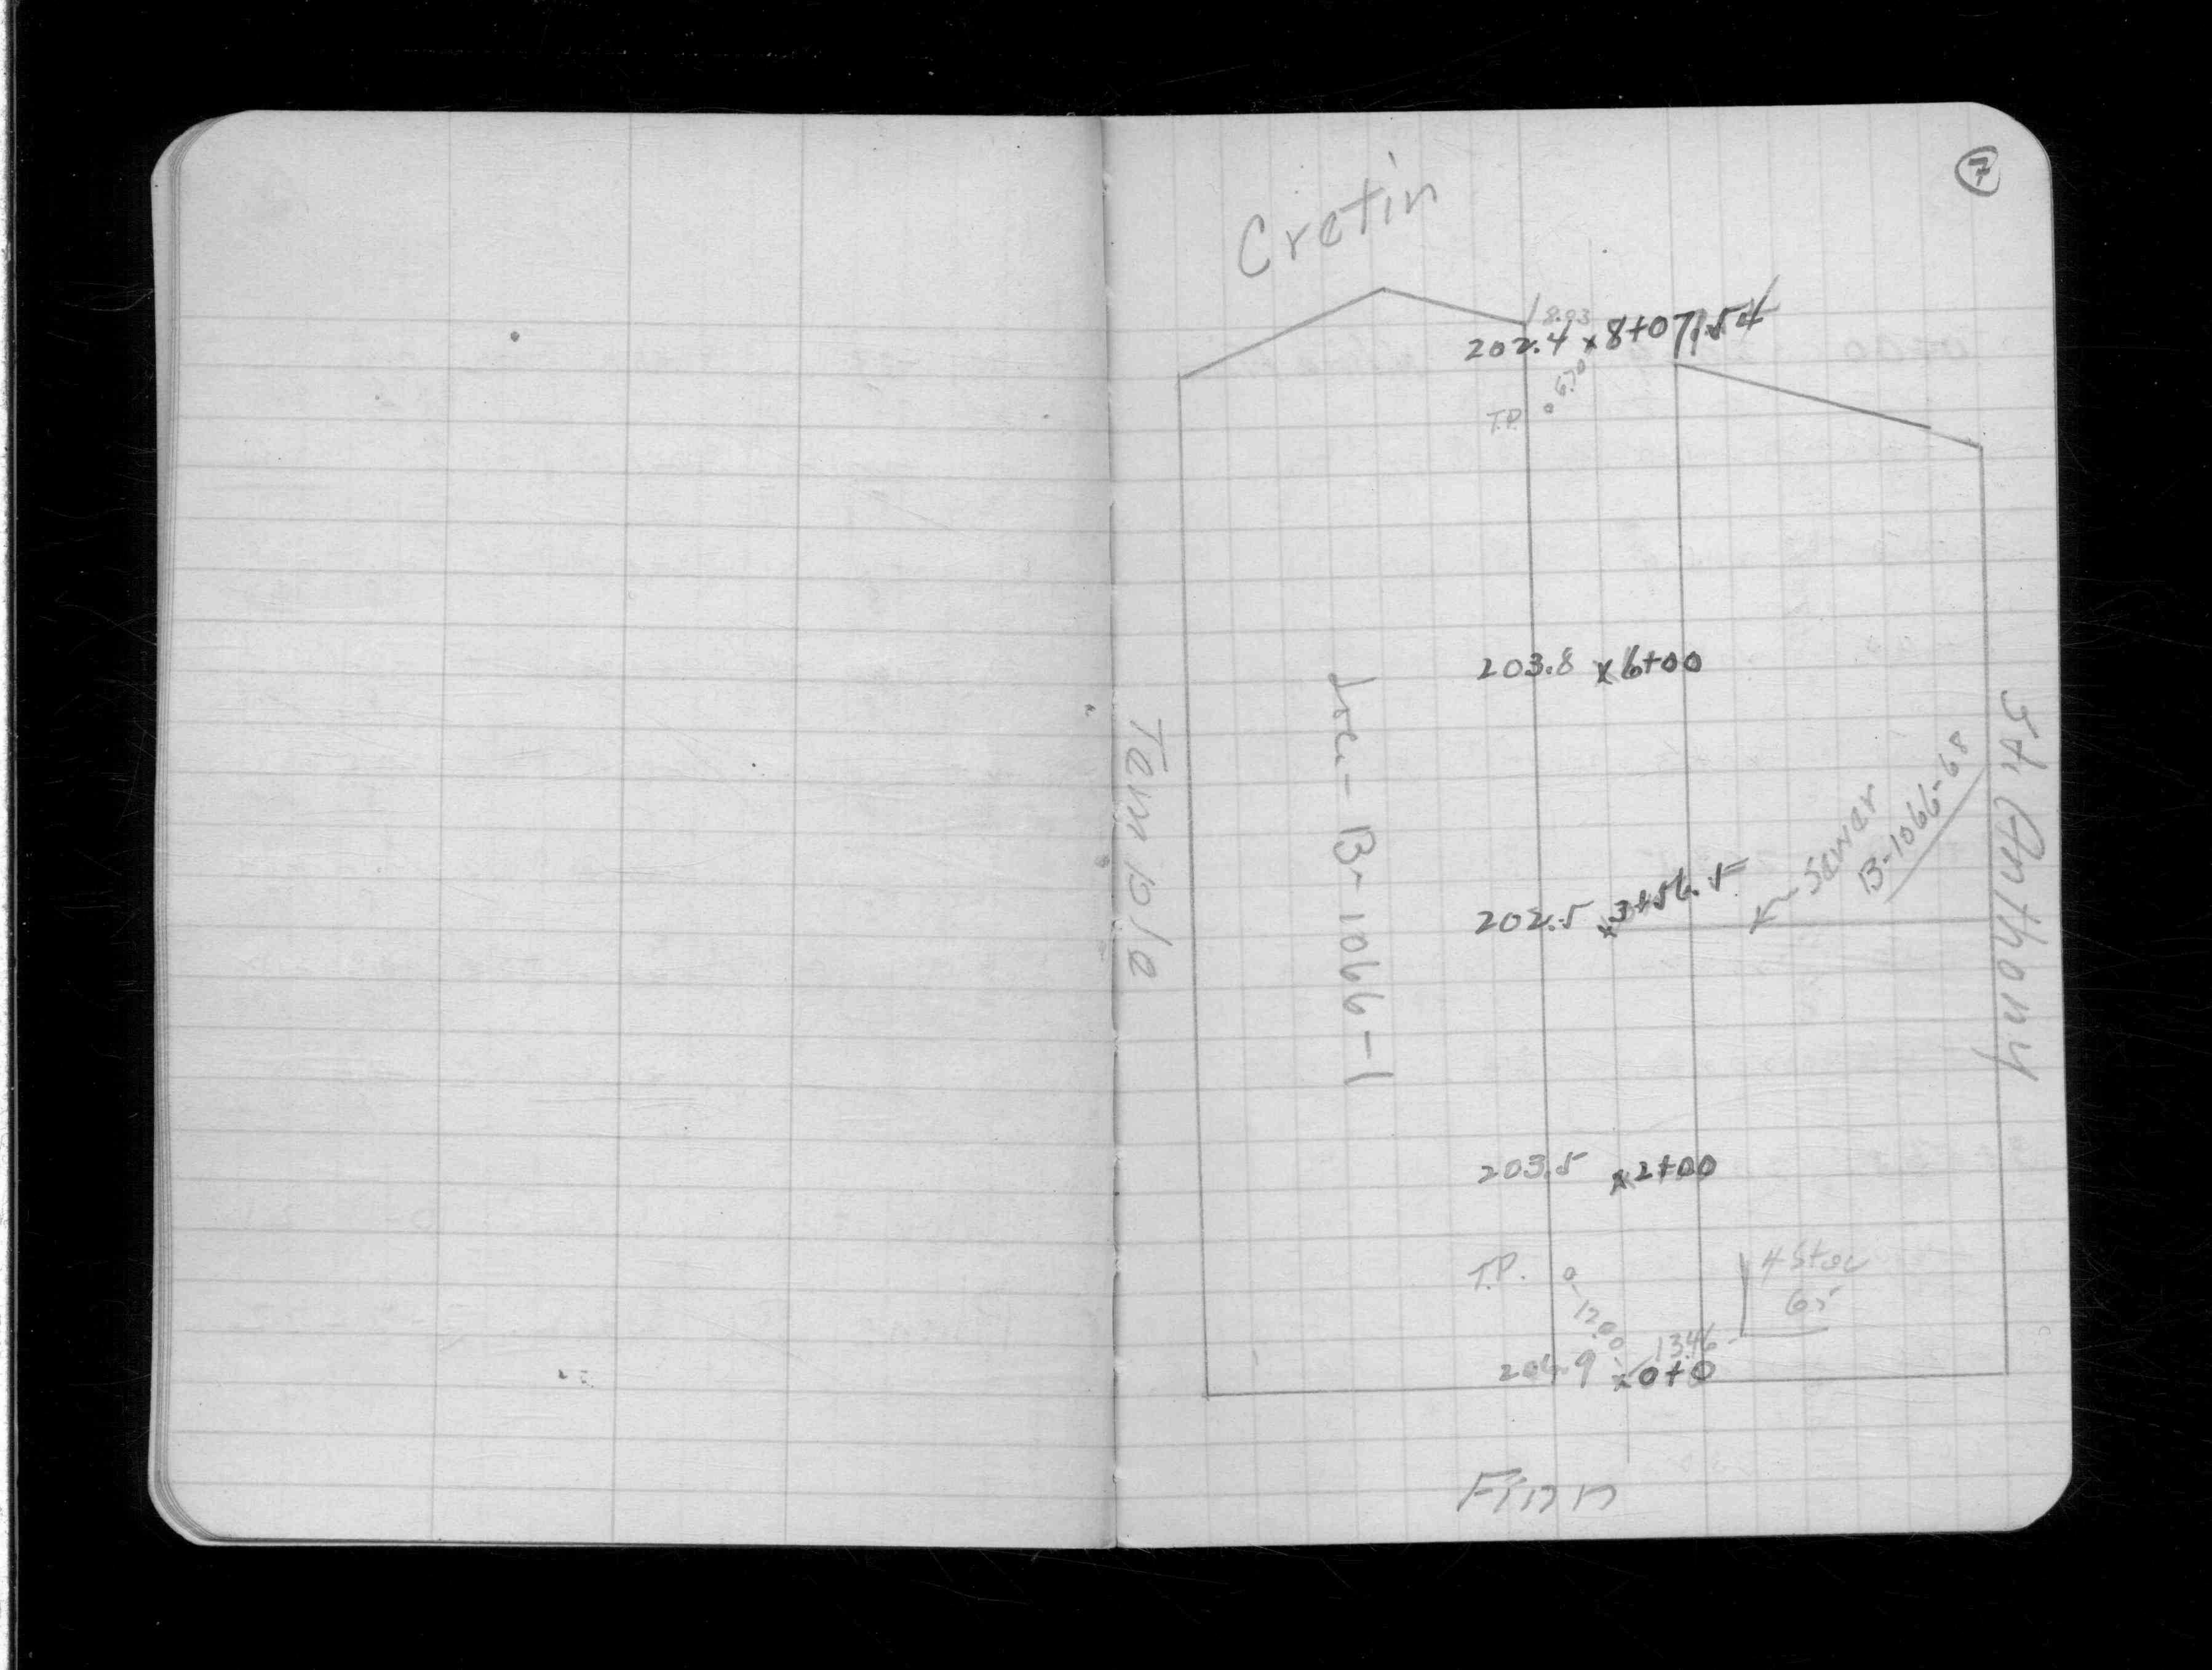 7
Cretin
18.03
202.4 x 8+07.54
6.70
T.P.
203.8 x 6+00
Temple
B-1066-1
St Anthony
Sewer
B-1066-68
202.5 x 3+56.5
203.5 x 2+00
T.P.
12.00
4 Stor
65
13.46
204.9 x 0+0
Finn